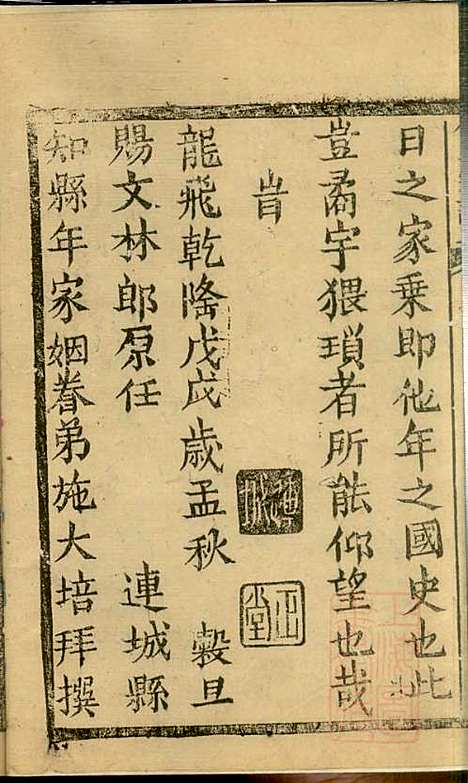 日之家乗即他年之國史也此
豈矞宇猥瑣者所能仰望也哉
旹
龍飛乾隆戊戌歲孟秋 穀旦
賜文林郎原任 連城縣
知縣年家姻眷弟施大培拜撰
正堂